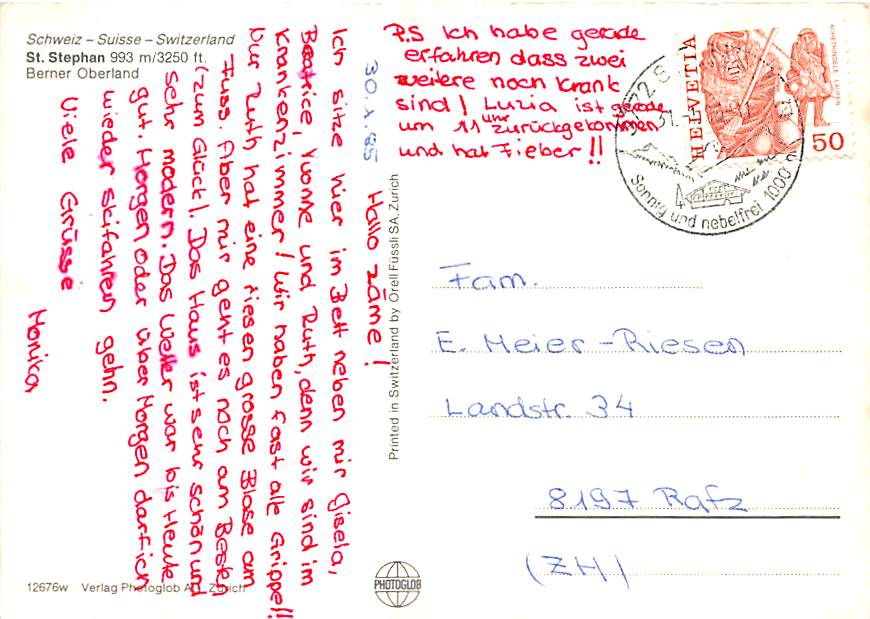 Schweiz – Suisse – Switzerland
St. Stephan 993 m/3250 ft.
Berner Oberland
30.1.85 Hallo zäme!
Ich sitze hier im Bett neben mir Gisela,
Beatrice, Yvonne und Ruth, denn wir sind im
Krankenzimmer! Wir haben fast alle Grippe!!
Nur Ruth hat eine riesen grosse Blase am
Fuss. Aber mir geht es noch am Besten
(zum Glück). Das Haus ist sehr schön und
sehr modern. Das Wetter war bis Heute
gut. Morgen oder über Morgen darf ich
wieder Skifahren gehn.
Viele Grüsse
Monika
P.S Ich habe gerade
erfahren dass zwei
weitere noch krank
sind! Luzia ist gerade
um 11 uhr zurückgekommen
und hat Fieber!!
HELVETIA
ACHETRINGELE LAUPEN
50
Sonnig und nebelfrei 1000 m
Fam.
E. Meier-Riesen
Landstr. 34
8197 Rafz
(ZH)
Printed in Switzerland by Orell Füssli SA, Zurich
PHOTOGLOB
12676w Verlag Photoglob AG, Zürich